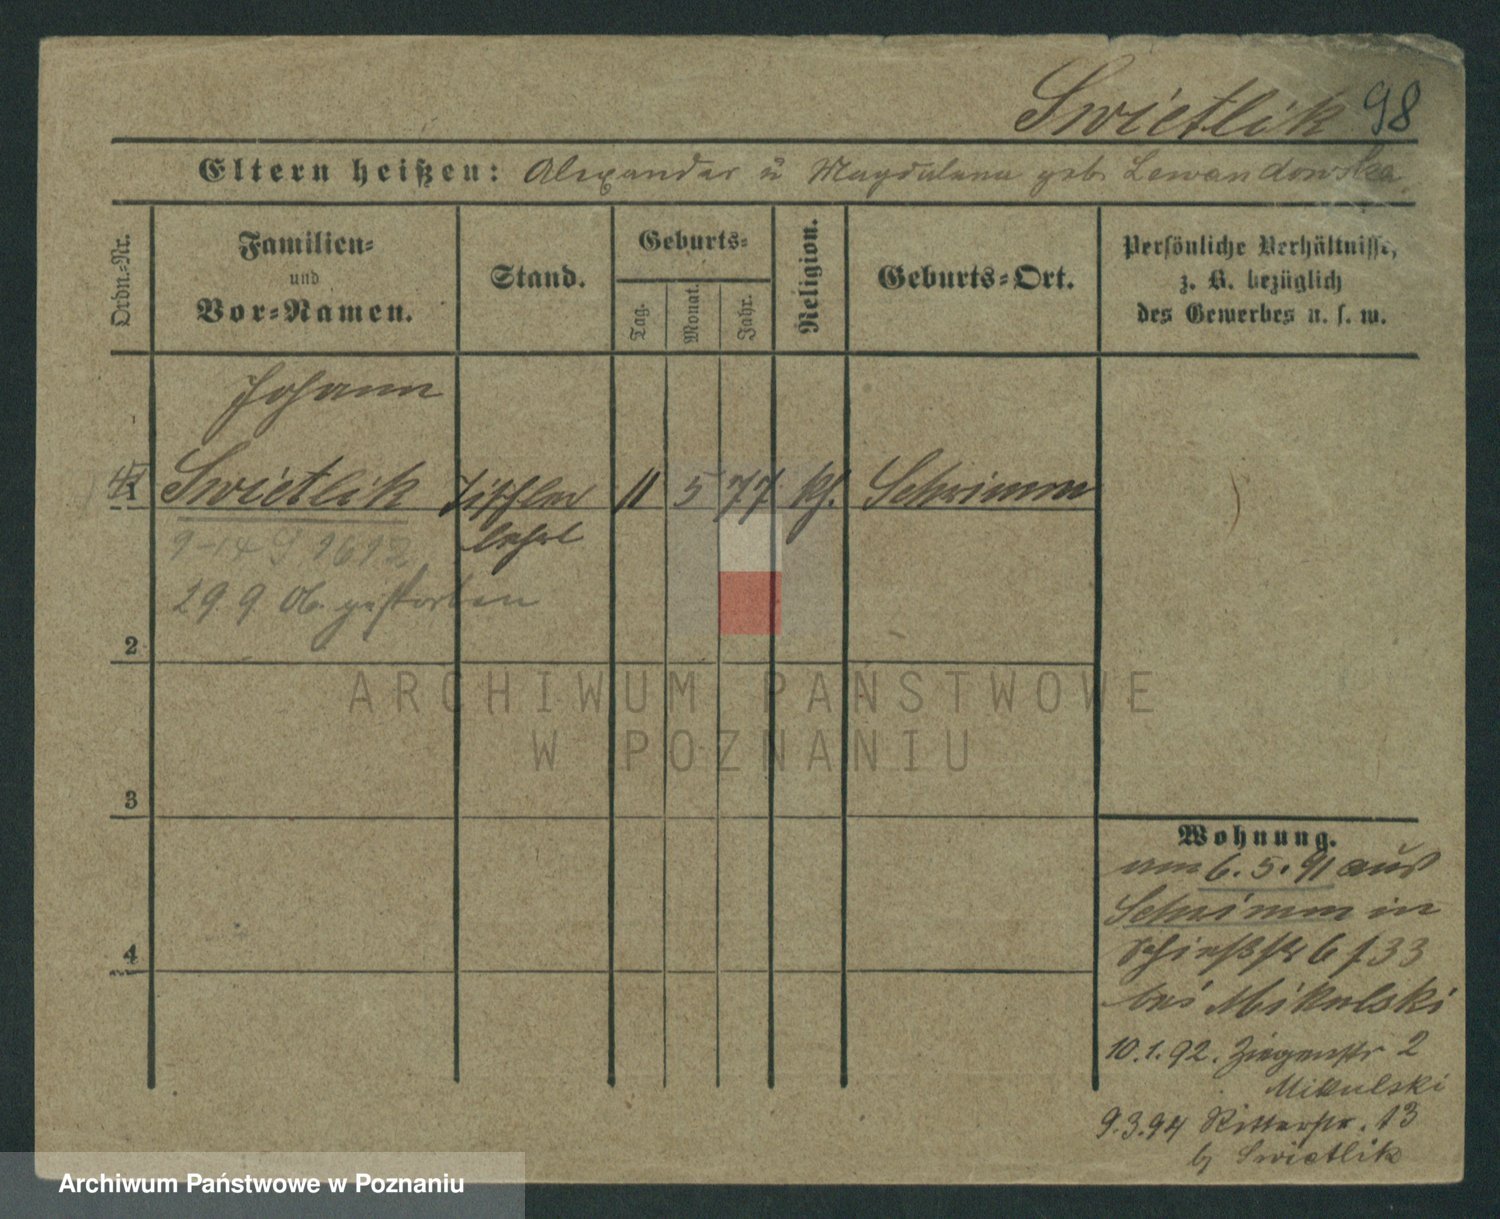 Swietlik 98
Eltern heißen: Alexander u Magdalena geb. Lewandowska
Ordn.-Nr.
Familien-
und
Vor-Namen.
Stand.
Geburts-
Tag.
Monat.
Jahr.
Religion.
Geburts-Ort.
Persönliche Verhältnisse,
z. B. bezüglich
des Gewerbes u. s. w.
Johann
1 Swietlik Tischler 11 5 77 kh. Schrimm
lehrl
29 9 06. gestorben
2
3
4
Wohnung.
am 6.5.91 aus
Schrimm in
Schießstr 6 f 33
bei Mikulski
10.1.92. Ziegenstr 2
Mikulski
9.3.94 Ritterstr. 13
b/ Swietlik
ARCHIWUM PAŃSTWOWE
W POZNANIU
Archiwum Państwowe w Poznaniu